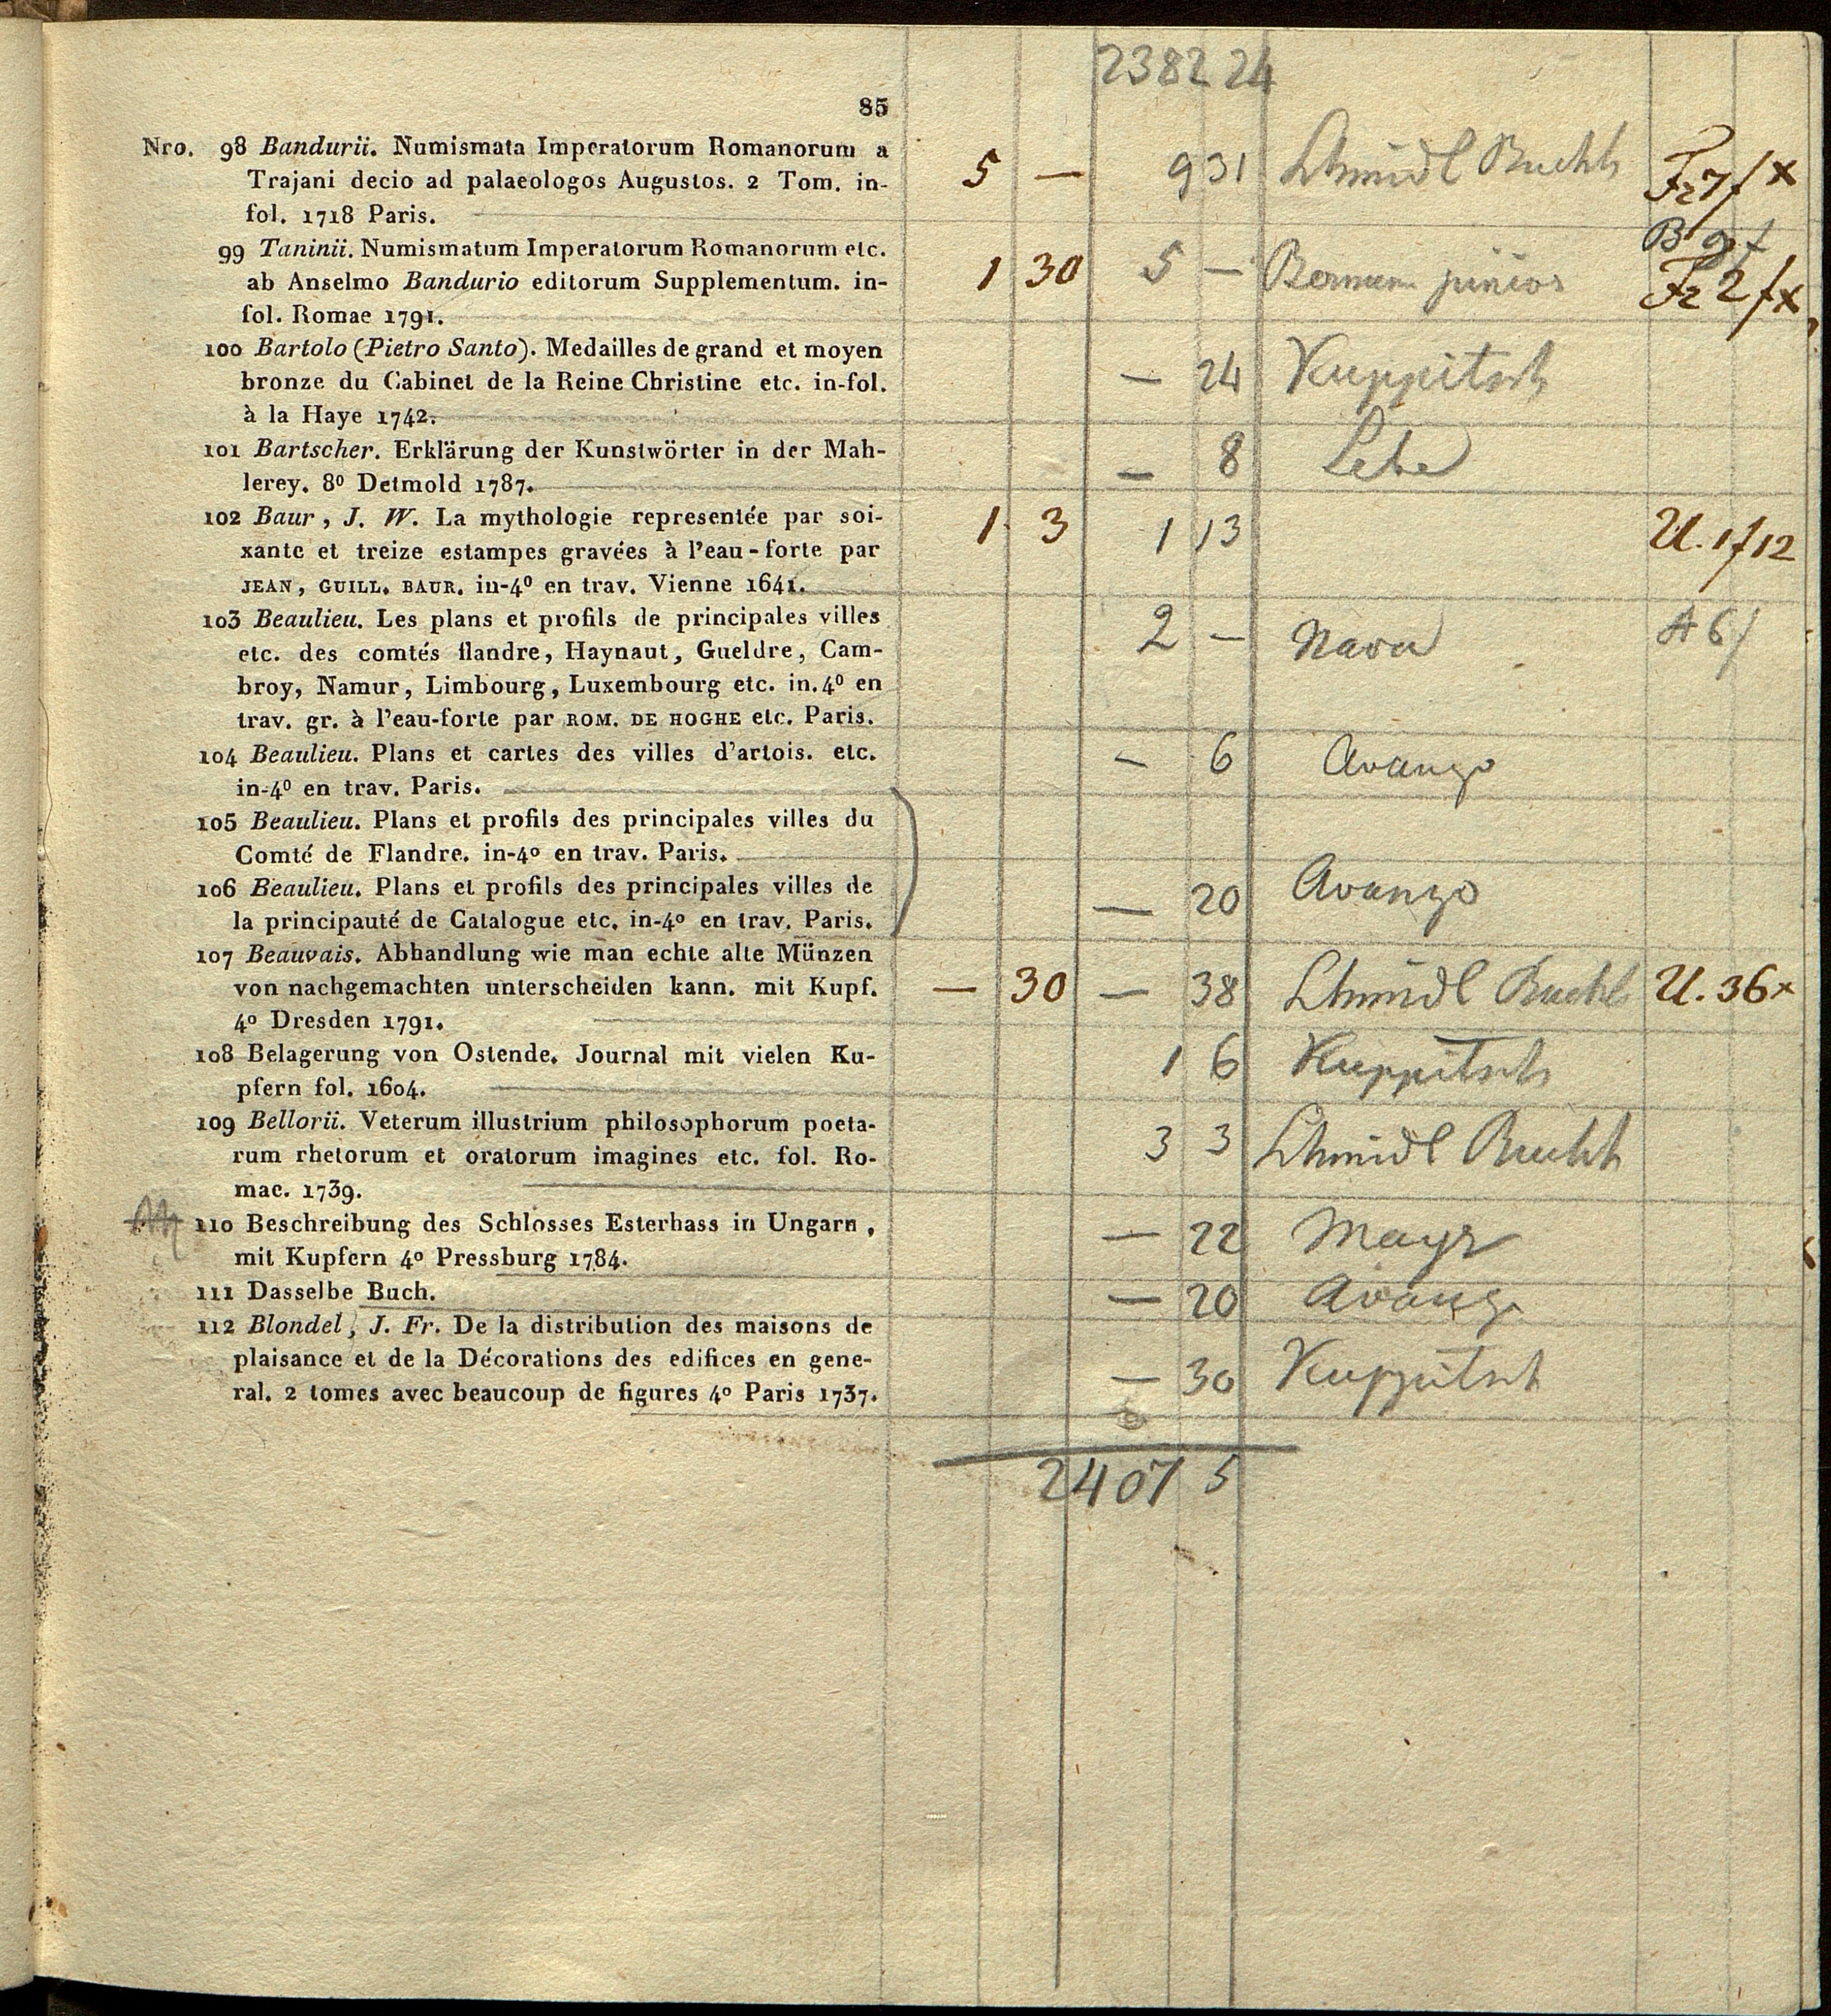 2382 24
85
Nro. 98 Bandurii. Numismata Imperatorum Romanorum a
Trajani decio ad palaeologos Augustos. 2 Tom. in-
fol. 1718 Paris.
5 — 9 31 Schmidl Buchh Fr 7 f x
99 Taninii. Numismatum Imperatorum Romanorum etc.
ab Anselmo Bandurio editorum Supplementum. in-
fol. Romae 1791.
B 9 f
1 30 5 — junior Fr 2 f x
100 Bartolo (Pietro Santo). Medailles de grand et moyen
bronze du Cabinet de la Reine Christine etc. in-fol.
à la Haye 1742.
— 24 Kuppitsch
101 Bartscher. Erklärung der Kunstwörter in der Mah-
lerey. 8º Detmold 1787.
— 8
102 Baur, J. W. La mythologie representée par soi-
xante et treize estampes gravées à l'eau-forte par
JEAN, GUILL. BAUR. in-4º en trav. Vienne 1641.
1 3 1 13 U. 1 f 12
103 Beaulieu. Les plans et profils de principales villes
etc. des comtés flandre, Haynaut, Gueldre, Cam-
broy, Namur, Limbourg, Luxembourg etc. in.4º en
trav. gr. à l'eau-forte par ROM. DE HOGHE etc. Paris.
2 — A 6 f
104 Beaulieu. Plans et cartes des villes d'artois. etc.
in-4º en trav. Paris.
— 6 Avanzo
105 Beaulieu. Plans et profils des principales villes du
Comté de Flandre. in-4º en trav. Paris.
106 Beaulieu. Plans et profils des principales villes de
la principauté de Catalogue etc. in-4º en trav. Paris.
— 20 Avanzo
107 Beauvais. Abhandlung wie man echte alte Münzen
von nachgemachten unterscheiden kann. mit Kupf.
4º Dresden 1791.
— 30 — 38 Schmidl Buchh U. 36 x
108 Belagerung von Ostende. Journal mit vielen Ku-
pfern fol. 1604.
1 6 Kuppitsch
109 Bellorii. Veterum illustrium philosophorum poeta-
rum rhetorum et oratorum imagines etc. fol. Ro-
mae. 1739.
3 3 Schmidl Buchh
110 Beschreibung des Schlosses Esterhass in Ungarn,
mit Kupfern 4º Pressburg 1784.
— 22 Mayr
111 Dasselbe Buch.
— 20 Avanzo
112 Blondel, J. Fr. De la distribution des maisons de
plaisance et de la Décorations des edifices en gene-
ral. 2 tomes avec beaucoup de figures 4º Paris 1737.
— 30 Kuppitsch
2407 5